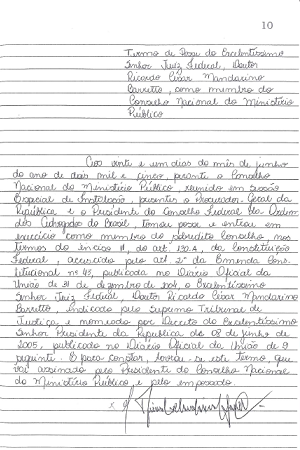 10
Termo de Posse do Excelentíssimo
Senhor Juiz Federal, Doutor
Ricardo César Mandarino
Barretto, como membro do
Conselho Nacional do Ministério
Público
Aos vinte e um dias do mês de junho
do ano de dois mil e cinco, perante o Conselho
Nacional do Ministério Público, reunido em sessão
Especial de Instalação, presentes o Procurador-Geral da
República e o Presidente do Conselho Federal da Ordem
dos Advogados do Brasil, tomou posse e entrou em
exercício como membro do sobredito Conselho, nos
termos do inciso, do art. 130-A, da Constituição
Federal, acrescido pelo art. 5º da Emenda Cons-
titucional nº 45, publicada no Diário Oficial da
União de 31 de dezembro de 2004, o Excelentíssimo
Senhor Juiz Federal, Doutor Ricardo César Mandarino
Barretto, indicado pelo Supremo Tribunal de
Justiça, e nomeado por Decreto do Excelentíssimo
Senhor Presidente da República de 08 de junho de
2005, publicado no Diário Oficial da União de 9
seguinte. E para constar, lavrou-se este termo, que
vai assinado pelo Presidente do Conselho Nacional
do Ministério Público e pelo empossado.